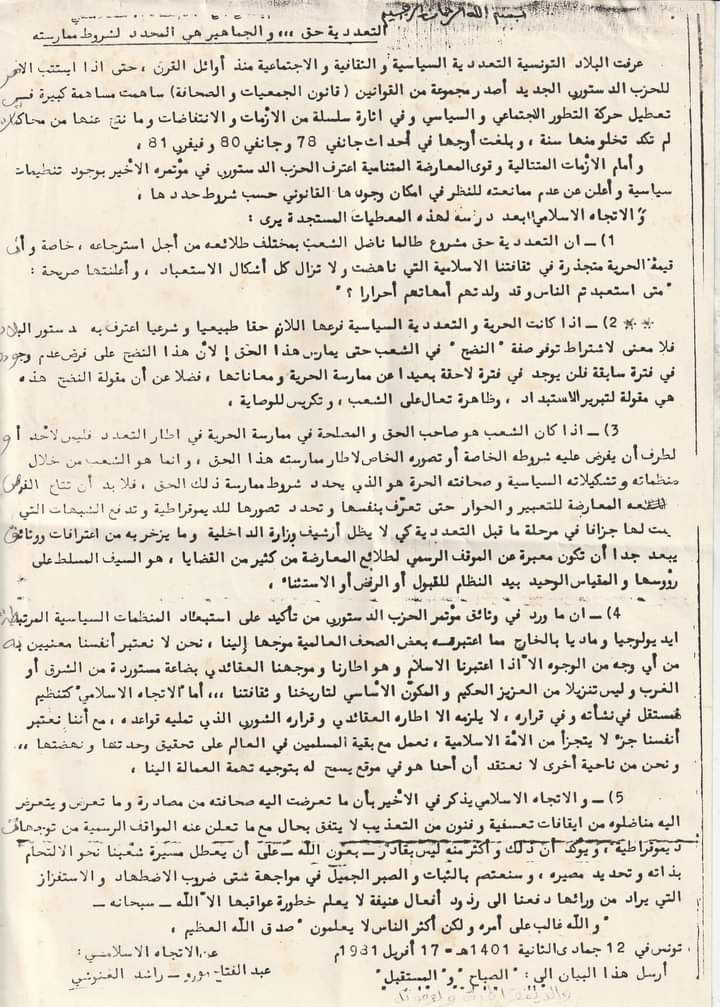 بسم الله الرحمان الرحيم
التعددية حق ،،، و الجماهير هي المحدد لشروط ممارسته
عرفت البلاد التونسية التعددية السياسية و الثقافية و الاجتماعية منذ أوائل القرن ، حتى اذا استتب الأمر
للحزب الدستوري الجديد أصدر مجموعة من القوانين ( قانون الجمعيات و الصحافة ) ساهمت مساهمة كبيرة في
تعطيل حركة التطور الاجتماعي و السياسي و في اثارة سلسلة من الأزمات و الانتفاضات و ما نتج عنها من محاكمات
لم تكد تخلو منها سنة ، و بلغت أوجها في أحداث جانفي 78 و جانفي 80 و فيفري 81 ،
و أمام الازمات المتتالية و قوى المعارضة المتنامية اعترف الحزب الدستوري في مؤتمره الأخير بوجود تنظيمات
سياسية و أعلن عن عدم ممانعته للنظر في امكان وجودها القانوني حسب شروط حددها ،
و الاتجاه الاسلامي بعد دراسته لهذه المعطيات المستجدة يرى :
1) ـ ان التعددية حق مشروع طالما ناضل الشعب بمختلف طلائعه من أجل استرجاعه ، خاصة و أن
قيمة الحرية متجذرة في ثقافتنا الاسلامية التي ناهضت و لا تزال كل أشكال الاستعباد ، و أعلنتها صريحة :
" متى استعبدتم الناس و قد ولدتهم أمهاتهم أحرارا ؟ "
2) ـ اذا كانت الحرية و التعددية السياسية فرعها اللازم حقا طبيعيا و شرعيا اعترف به دستور البلاد
فلا معنى لاشتراط توفر صفة " النضج " في الشعب حتى يمارس هذا الحق إ لأن هذا النضج على فرض عدم وجوده
في فترة سابقة فلن يوجد في فترة لاحقة بعيدا عن ممارسة الحرية و معاناتها ، فضلا عن أن مقولة النضج هذه
هي مقولة لتبرير الاستبداد ، و ظاهرة تعال على الشعب ، و تكريس للوصاية ،
3) ـ اذا كان الشعب هو صاحب الحق و المصلحة في ممارسة الحرية في اطار التعدد فليس لأحد أو
لطرف أن يفرض عليه شروطه الخاصة أو تصوره الخاص لاطار ممارسته هذا الحق ، و انما هو الشعب من خلال
منظماته و تشكيلاته السياسية و صحافته الحرة هو الذي يحدد شروط ممارسة ذلك الحق ، فلا بد أن تتاح الفرص
المعارضة للتعبير و الحوار حتى تعرّف بنفسها و تحدد تصورها للديموقراطية و تدفع الشبهات التي
لها جزافا في مرحلة ما قبل التعددية كي لا يظل أرشيف وزارة الداخلية و ما يزخر به من اعترافات و وثائق
يبعد جدا أن تكون معبرة عن الموقف الرسمي لطلائع المعارضة من كثير من القضايا ، هو السيف المسلط على
رؤوسها و المقياس الوحيد بيد النظام للقبول أو الرفض أو الاستثناء ،
4) ـ ان ما ورد في وثائق مؤتمر الحزب الدستوري من تأكيد على استبعاد المنظمات السياسية المرتبطة
ايديولوجيا و ماديا بالخارج مما اعتبرته بعض الصحف العالمية موجها إلينا ، نحن لا نعتبر أنفسنا معنيين به
من أي وجه من الوجوه الا اذا اعتبرنا الاسلام و هو اطارنا و موجهنا العقائدي بضاعة مستوردة من الشرق أو
الغرب و ليس تنزيلا من العزيز الحكيم و المكوّن الأساسي لتاريخنا و ثقافتنا ،،، أما " الاتجاه الاسلامي " كتنظيم
فمستقل في نشأته و في قراره ، لا يلزمه الا اطاره العقائدي و قراره الشوري الذي تمليه قواعده ، مع أننا نعتبر
أنفسنا جزء لا يتجزأ من الأمة الاسلامية ، نعمل مع بقية المسلمين في العالم على تحقيق وحدتها و نهضتها ،،
و نحن من ناحية أخرى لا نعتقد أن أحدا هو في موقع يسمح له بتوجيه تهمة العمالة الينا ،
5) ـ و الاتجاه الاسلامي يذكر في الأخير بأن ما تعرضت اليه صحافته من مصادرة و ما تعرض و يتعرض
اليه مناضلوه من ايقافات تعسفية و فنون من التعذيب لا يتفق بحال مع ما تعلن عنه المواقف الرسمية من توجهات
ديموقراطية ، و يؤكد أن ذلك و أكثر منه ليس بقادر ـ بعون الله ـ على أن يعطل مسيرة شعبنا نحو الالتحام
بذاته و تحديد مصيره ، و سنعتصم بالثبات و الصبر الجميل في مواجهة شتى ضروب الاضطهاد و الاستفزاز
التي يراد من ورائها دفعنا الى ردود أفعال عنيفة لا يعلم خطورة عواقبها الا الله ـ سبحانه ـ
" و الله غالب على أمره و لكن أكثر الناس لا يعلمون " صدق الله العظيم ،
تونس في 12 جمادى الثانية 1401 هـ ـ 17 أفريل 1981م
عن الاتجاه الاسلامي :
عبد الفتاح مورو ـ راشد الغنوشي
أرسل هذا البيان الى : " الصباح " و " المستقبل "